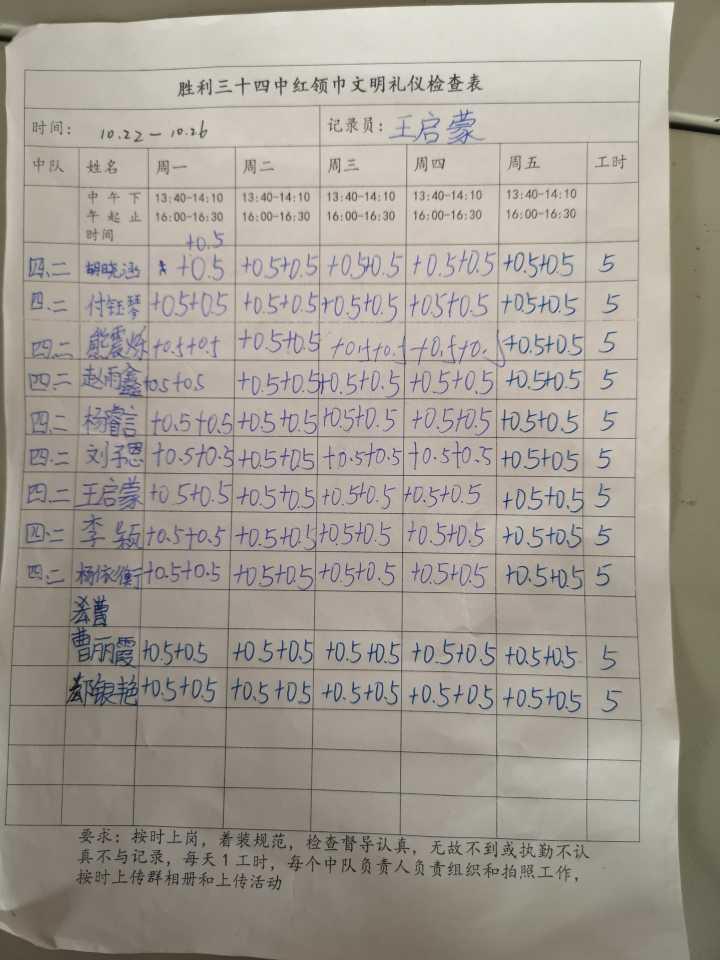 胜利三十四中红领巾文明礼仪检查表
时间: 10.22-10.26 记录员: 王启蒙
中队 姓名 周一 周二 周三 周四 周五 工时
中午下 13:40-14:10 13:40-14:10 13:40-14:10 13:40-14:10 13:40-14:10
午起止 16:00-16:30 16:00-16:30 16:00-16:30 16:00-16:30 16:00-16:30
时间
+0.5
四.二 胡晓涵 +0.5 +0.5+0.5 +0.5+0.5 +0.5+0.5 +0.5+0.5 5
四.二 付钰琴 +0.5+0.5 +0.5+0.5 +0.5+0.5 +0.5+0.5 +0.5+0.5 5
四.二 熊震烁 +0.5+0.5 +0.5+0.5 +0.5+0.5 +0.5+0.5 +0.5+0.5 5
四.二 赵雨鑫 +0.5+0.5 +0.5+0.5 +0.5+0.5 +0.5+0.5 +0.5+0.5 5
四.二 杨睿言 +0.5+0.5 +0.5+0.5 +0.5+0.5 +0.5+0.5 +0.5+0.5 5
四.二 刘子恩 +0.5+0.5 +0.5+0.5 +0.5+0.5 +0.5+0.5 +0.5+0.5 5
四.二 王启蒙 +0.5+0.5 +0.5+0.5 +0.5+0.5 +0.5+0.5 +0.5+0.5 5
四.二 李颖 +0.5+0.5 +0.5+0.5 +0.5+0.5 +0.5+0.5 +0.5+0.5 5
四.二 杨依衡 +0.5+0.5 +0.5+0.5 +0.5+0.5 +0.5+0.5 +0.5+0.5 5
曹
曹丽霞 +0.5+0.5 +0.5+0.5 +0.5+0.5 +0.5+0.5 +0.5+0.5 5
郝银艳 +0.5+0.5 +0.5+0.5 +0.5+0.5 +0.5+0.5 +0.5+0.5 5
要求: 按时上岗, 着装规范, 检查督导认真, 无故不到或执勤不认
真不与记录, 每天1工时, 每个中队负责人负责组织和拍照工作,
按时上传群相册和上传活动